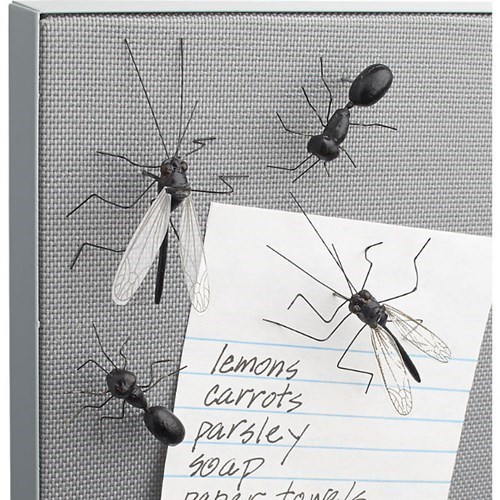 lemons
carrots
parsley
soap
paper towels